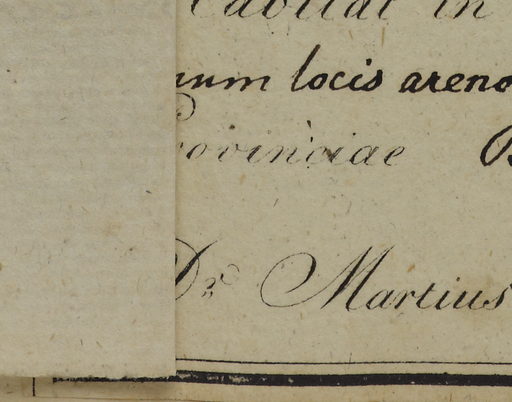 habitat in
num locis areno
Provinciae B
Dr. Martius